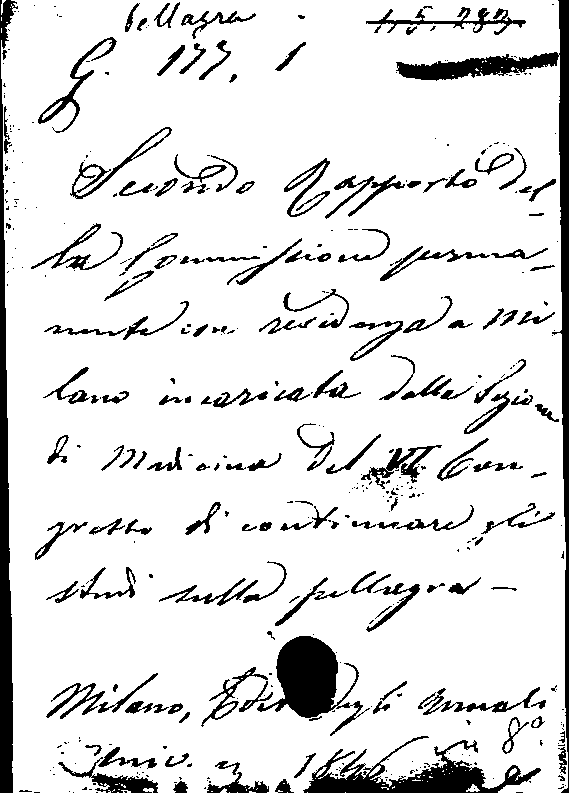 Pellagra
1. 5. 283.
G. 177. 1
Secondo Rapporto del-
la Commissione perma-
nente con residenza a Mi-
lano incaricata dalla Sezione
di Medicina del VI Con-
gresso di continuare gli
studi sulla pellagra —
Milano, degli Annali
Univ. 1846 in 8º